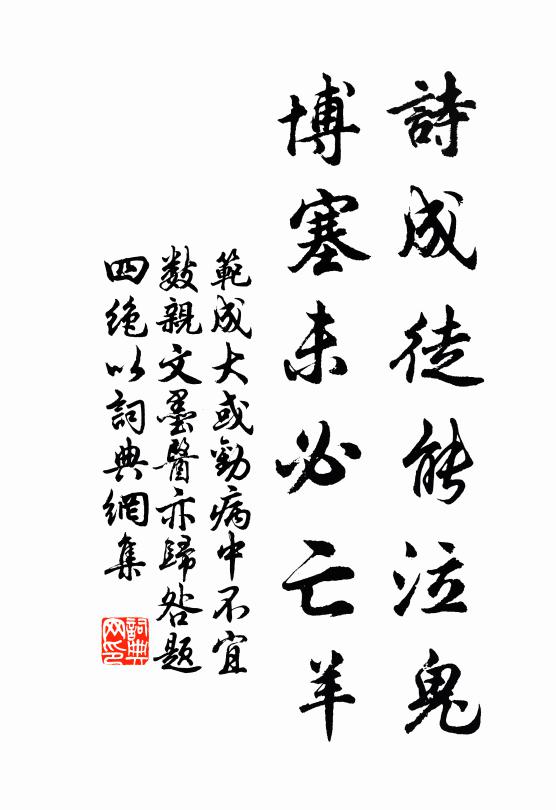 詩成徒能泣鬼
博塞未必亡羊
範成大或勸病中不宜
數親文墨醫亦歸咎題
四絕以詞典網集
詞典
网印